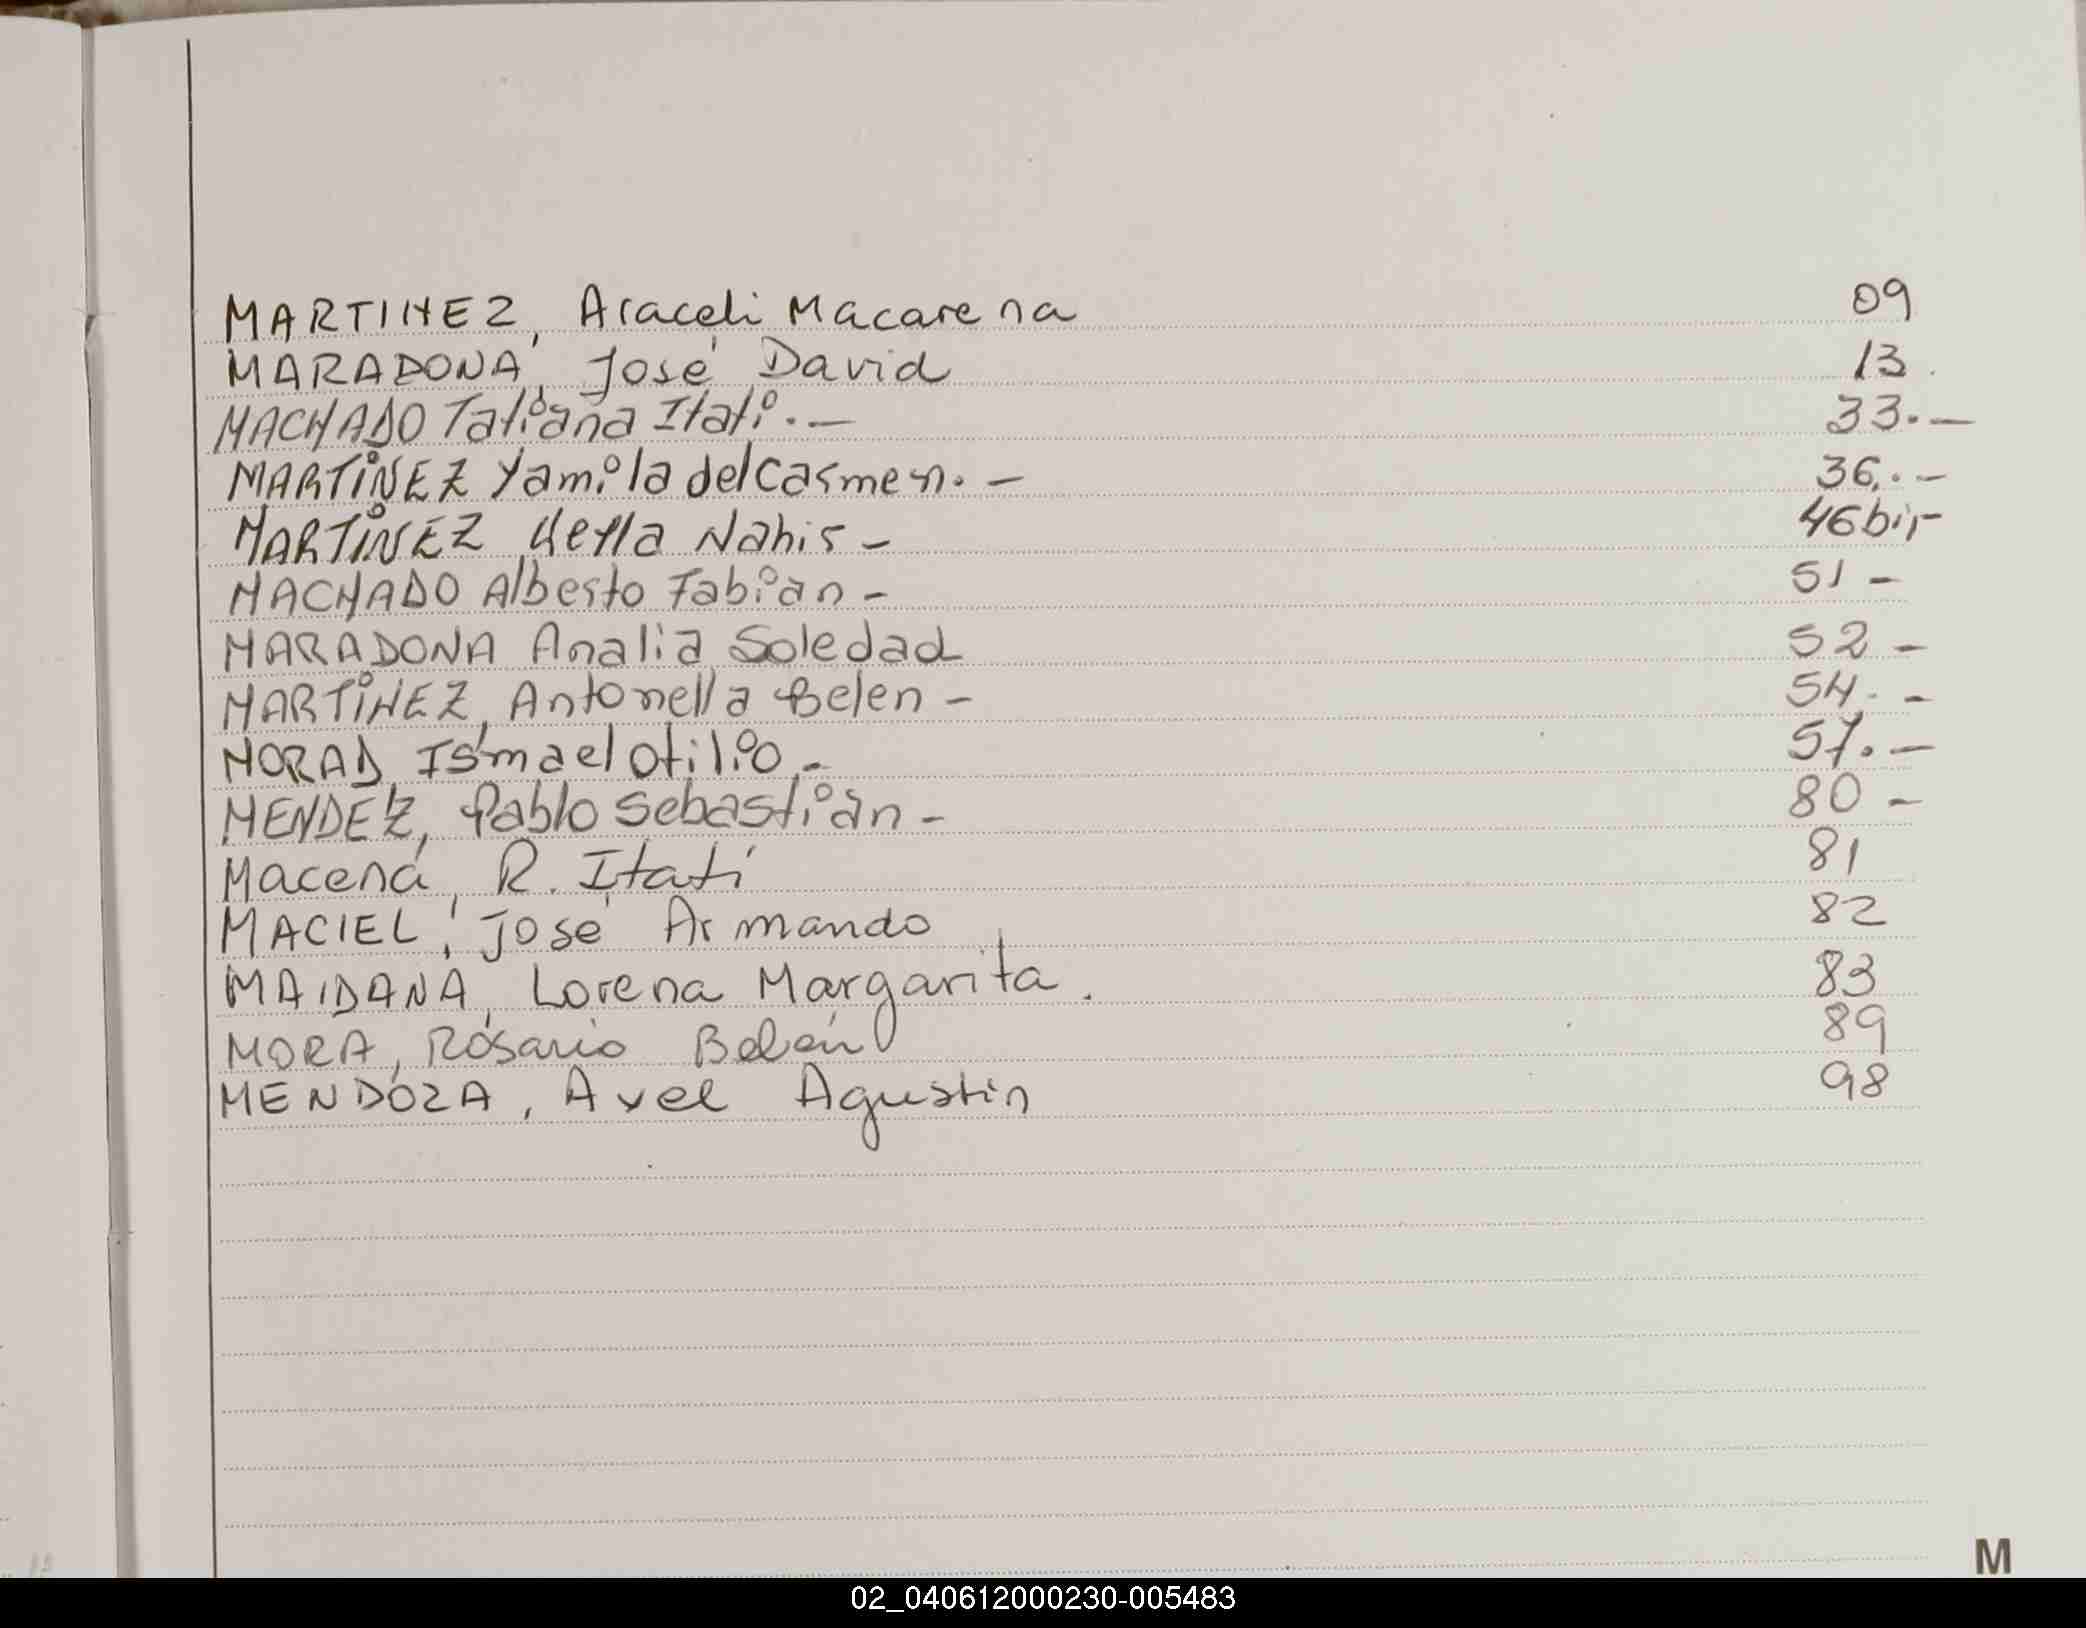 MARTINEZ, Araceli Macarena 09
MARADONA, José David 13
MACHADO Tatiana Itati.- 33.-
MARTINEZ Yamila del Carmen.- 36.-
MARTINEZ Nahir- 46 bis-
MACHADO Alberto Fabian- 51-
MARADONA Analia Soledad 52-
MARTINEZ, Antonella Belen- 54.-
MORAD Ismael Otilio.- 57.-
MENDEZ, Pablo Sebastián- 80-
Macena, R. Itatí 81
MACIEL, José Armando 82
MAIDANA, Lorena Margarita. 83
MORA, Rosario Belén 89
MENDOZA, Axel Agustin 98
M
02_040612000230-005483